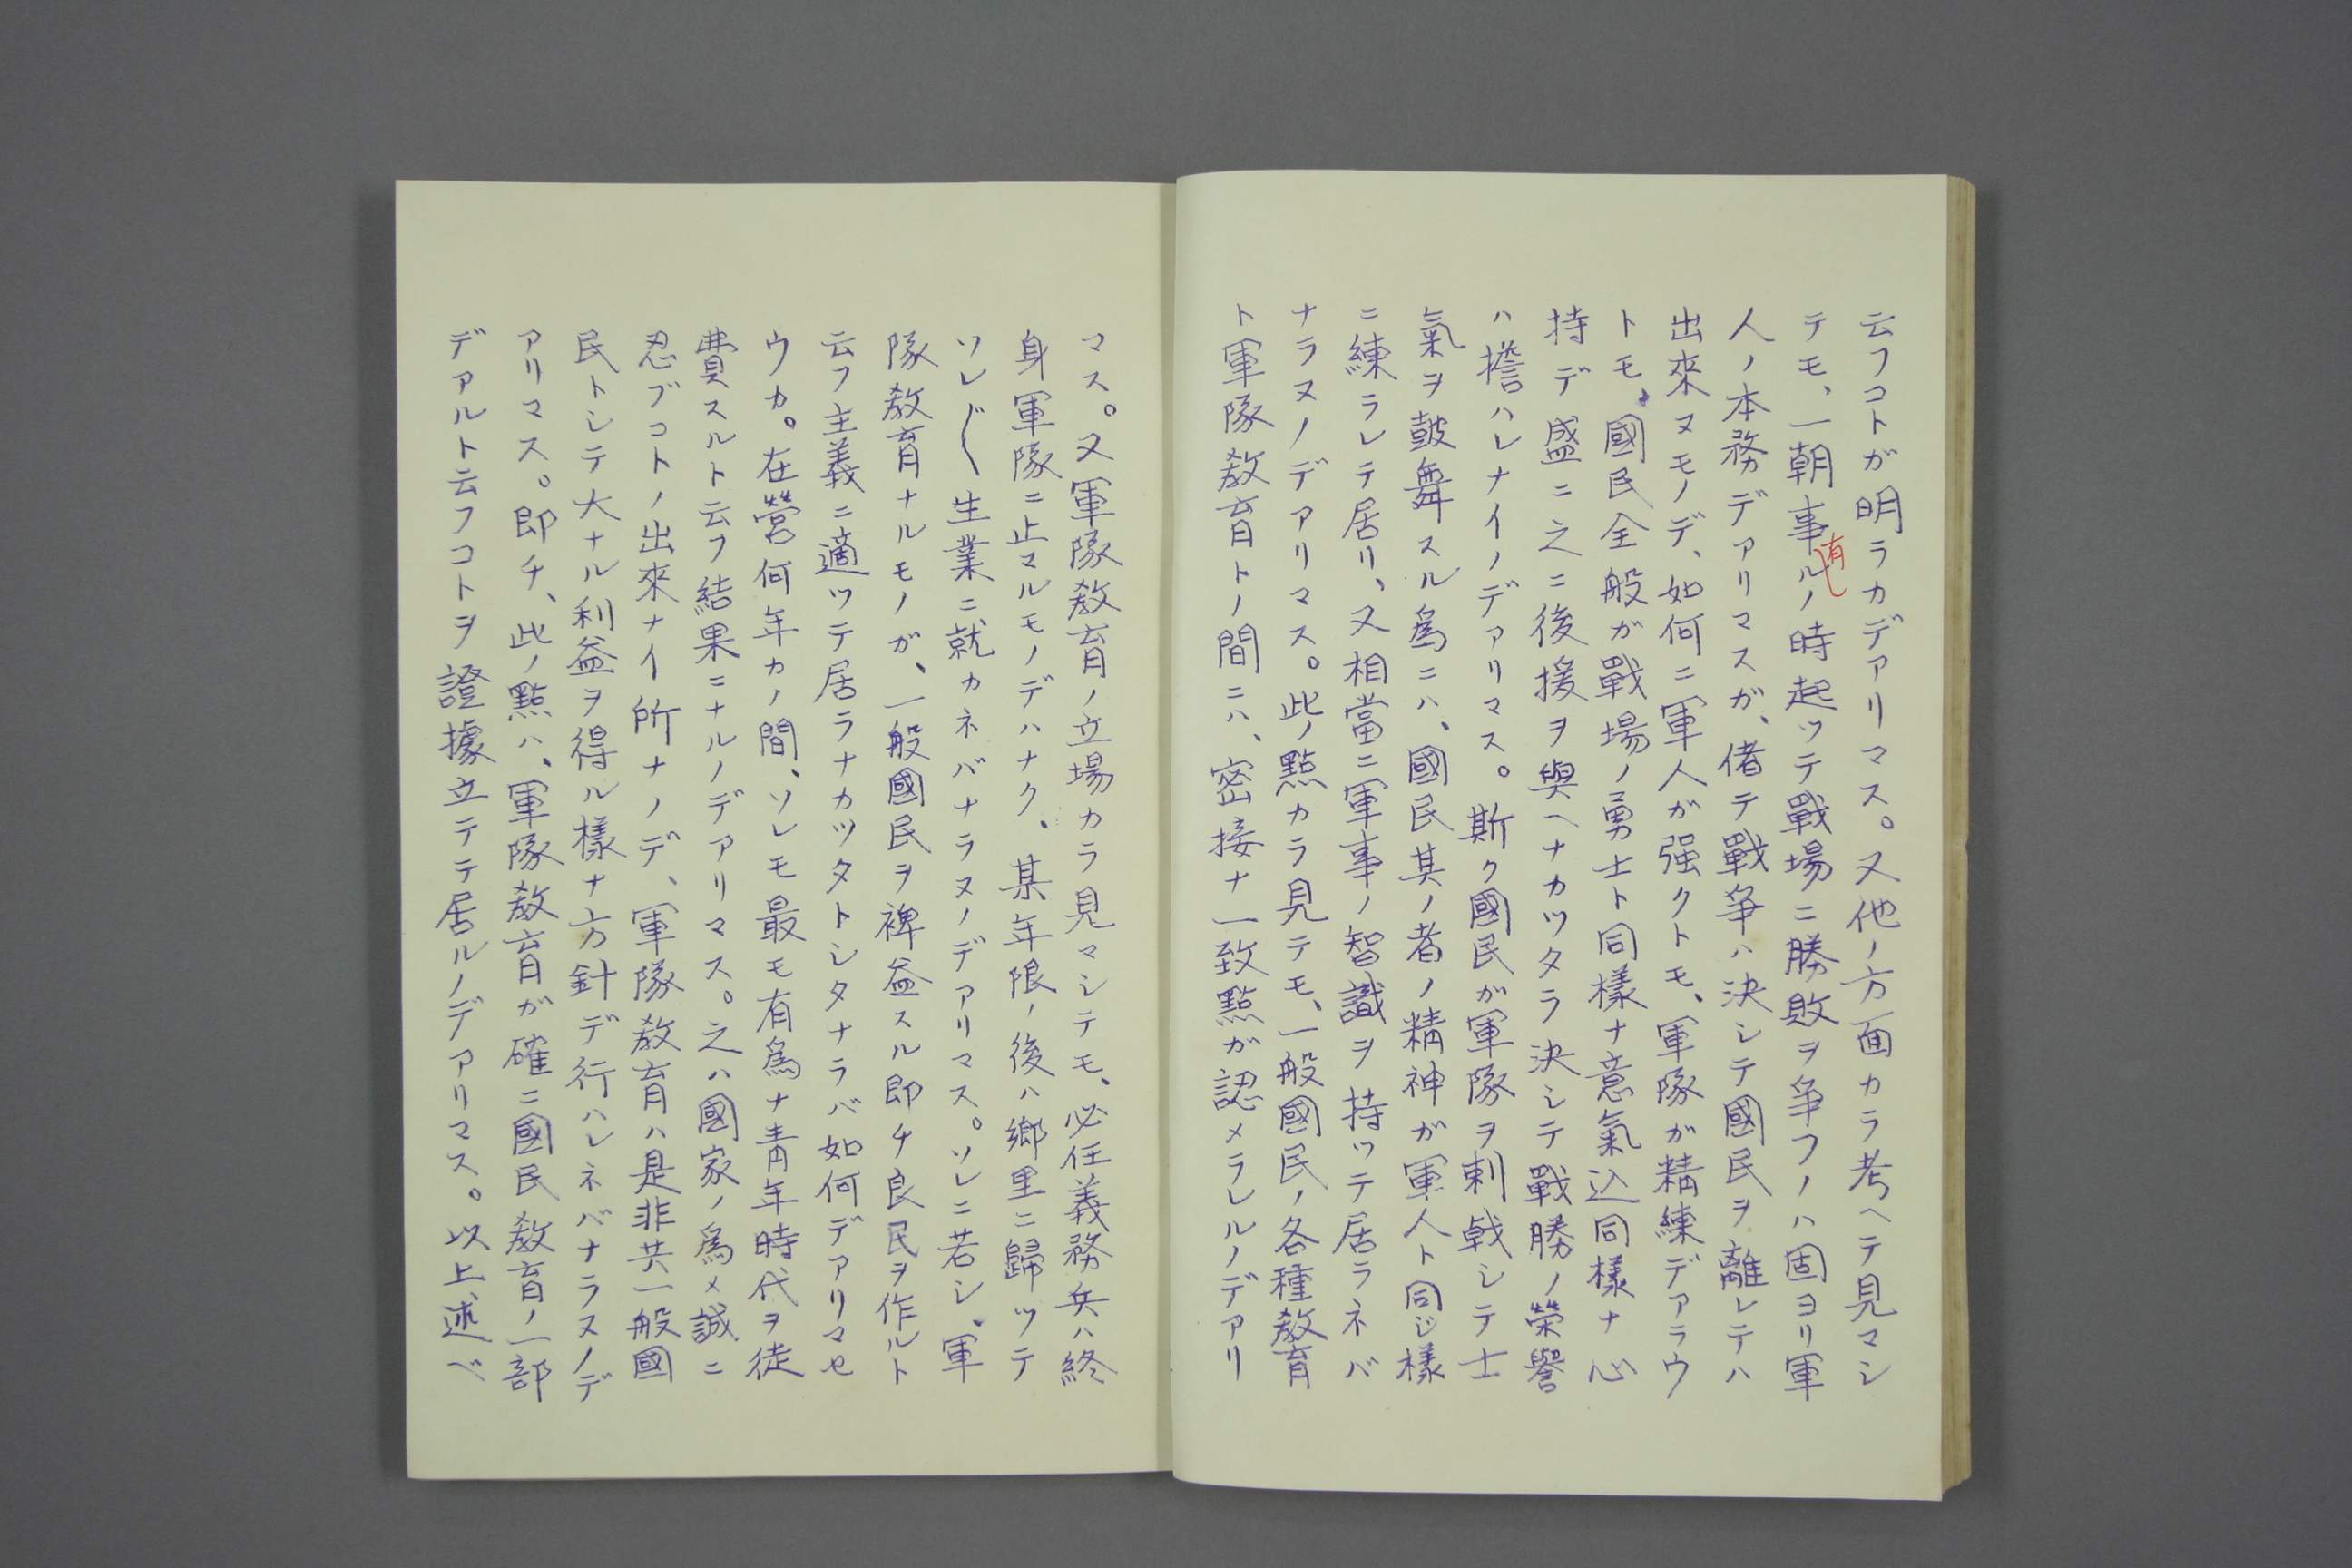 云フコトガ明ラカデアリマス。又他ノ方面カラ考ヘテ見マシ
テモ、一朝事有ルノ時起ツテ戰場ニ勝敗ヲ争フノハ固ヨリ軍
人ノ本務デアリマスガ、偖テ戰争ハ決シテ國民ヲ離レテハ
出來ヌモノデ、如何ニ軍人が强クトモ、軍隊が精練デアラウ
トモ、國民全般が戰場ノ勇士ト同樣ナ意氣込同樣ナ心
持デ盛ニ之ニ後援ヲ與ヘナカツタラ決シテ戰勝ノ榮譽
ハ擔ハレナイノデアリマス。斯ク國民が軍隊ヲ刺戟シテ士
氣ヲ皷舞スル爲ニハ、國民其ノ者ノ精神が軍人ト同じ樣
ニ練ラレテ居リ、又相當ニ軍事ノ智識ヲ持ツテ居ラネバ
ナラヌノデアリマス。此ノ點カラ見テモ、一般國民ノ各種敎育
ト軍隊敎育トノ間ニハ、密接ナ一致點が認メラレルノデアリ
マス。又軍隊敎育ノ立場カラ見マシテモ、必任義務兵ハ終
身軍隊ニ止マルモノデハナク、某年限ノ後ハ鄕里ニ歸ツテ
ソレ〴〵生業ニ就カネバナラヌノデアリマス。ソレニ若シ、軍
隊敎育ナルモノガ、一般國民ヲ裨益スル即チ良民ヲ作ルト
云フ主義ニ適ツテ居ラナカツタトシタナラバ如何デアリマセ
ウカ。在營何年カノ間、ソレモ最モ有爲ナ靑年時代ヲ徒
費スルト云フ結果ニナルノデアリマス。之ハ國家ノ爲メ誠ニ
忍ブコトノ出來ナイ所ナノデ、軍隊敎育ハ是非共一般國
民トシテ大ナル利益ヲ得ル樣ナ方針デ行ハレネバナラヌノデ
アリマス。即チ、此ノ點ハ、軍隊敎育が確ニ國民敎育ノ一部
デアルト云フコトヲ證據立テテ居ルノデアリマス。以上述ベ